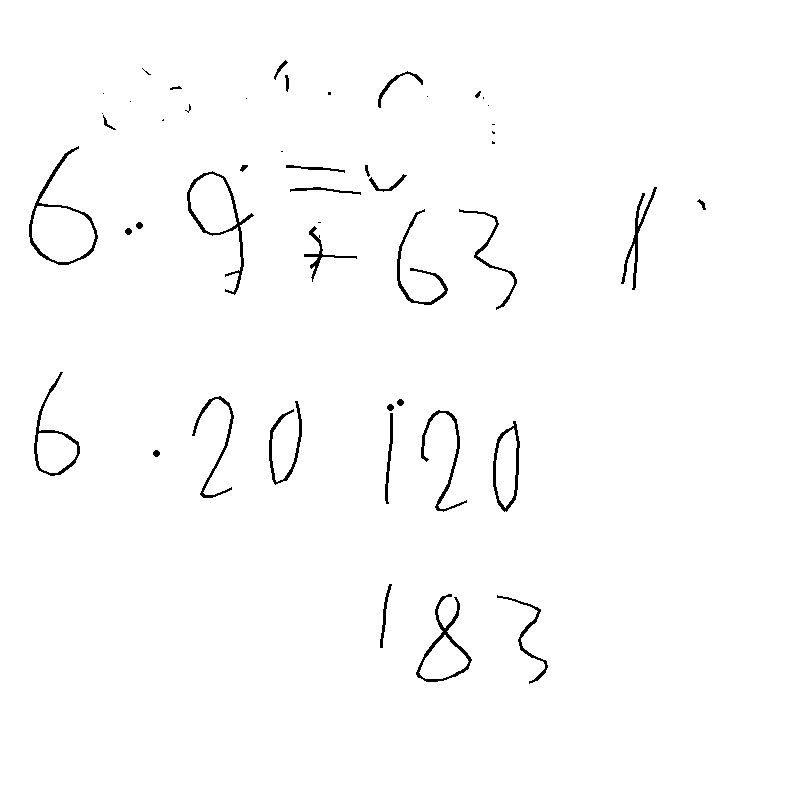 6 · 9 = + 63
6 · 20 120
183